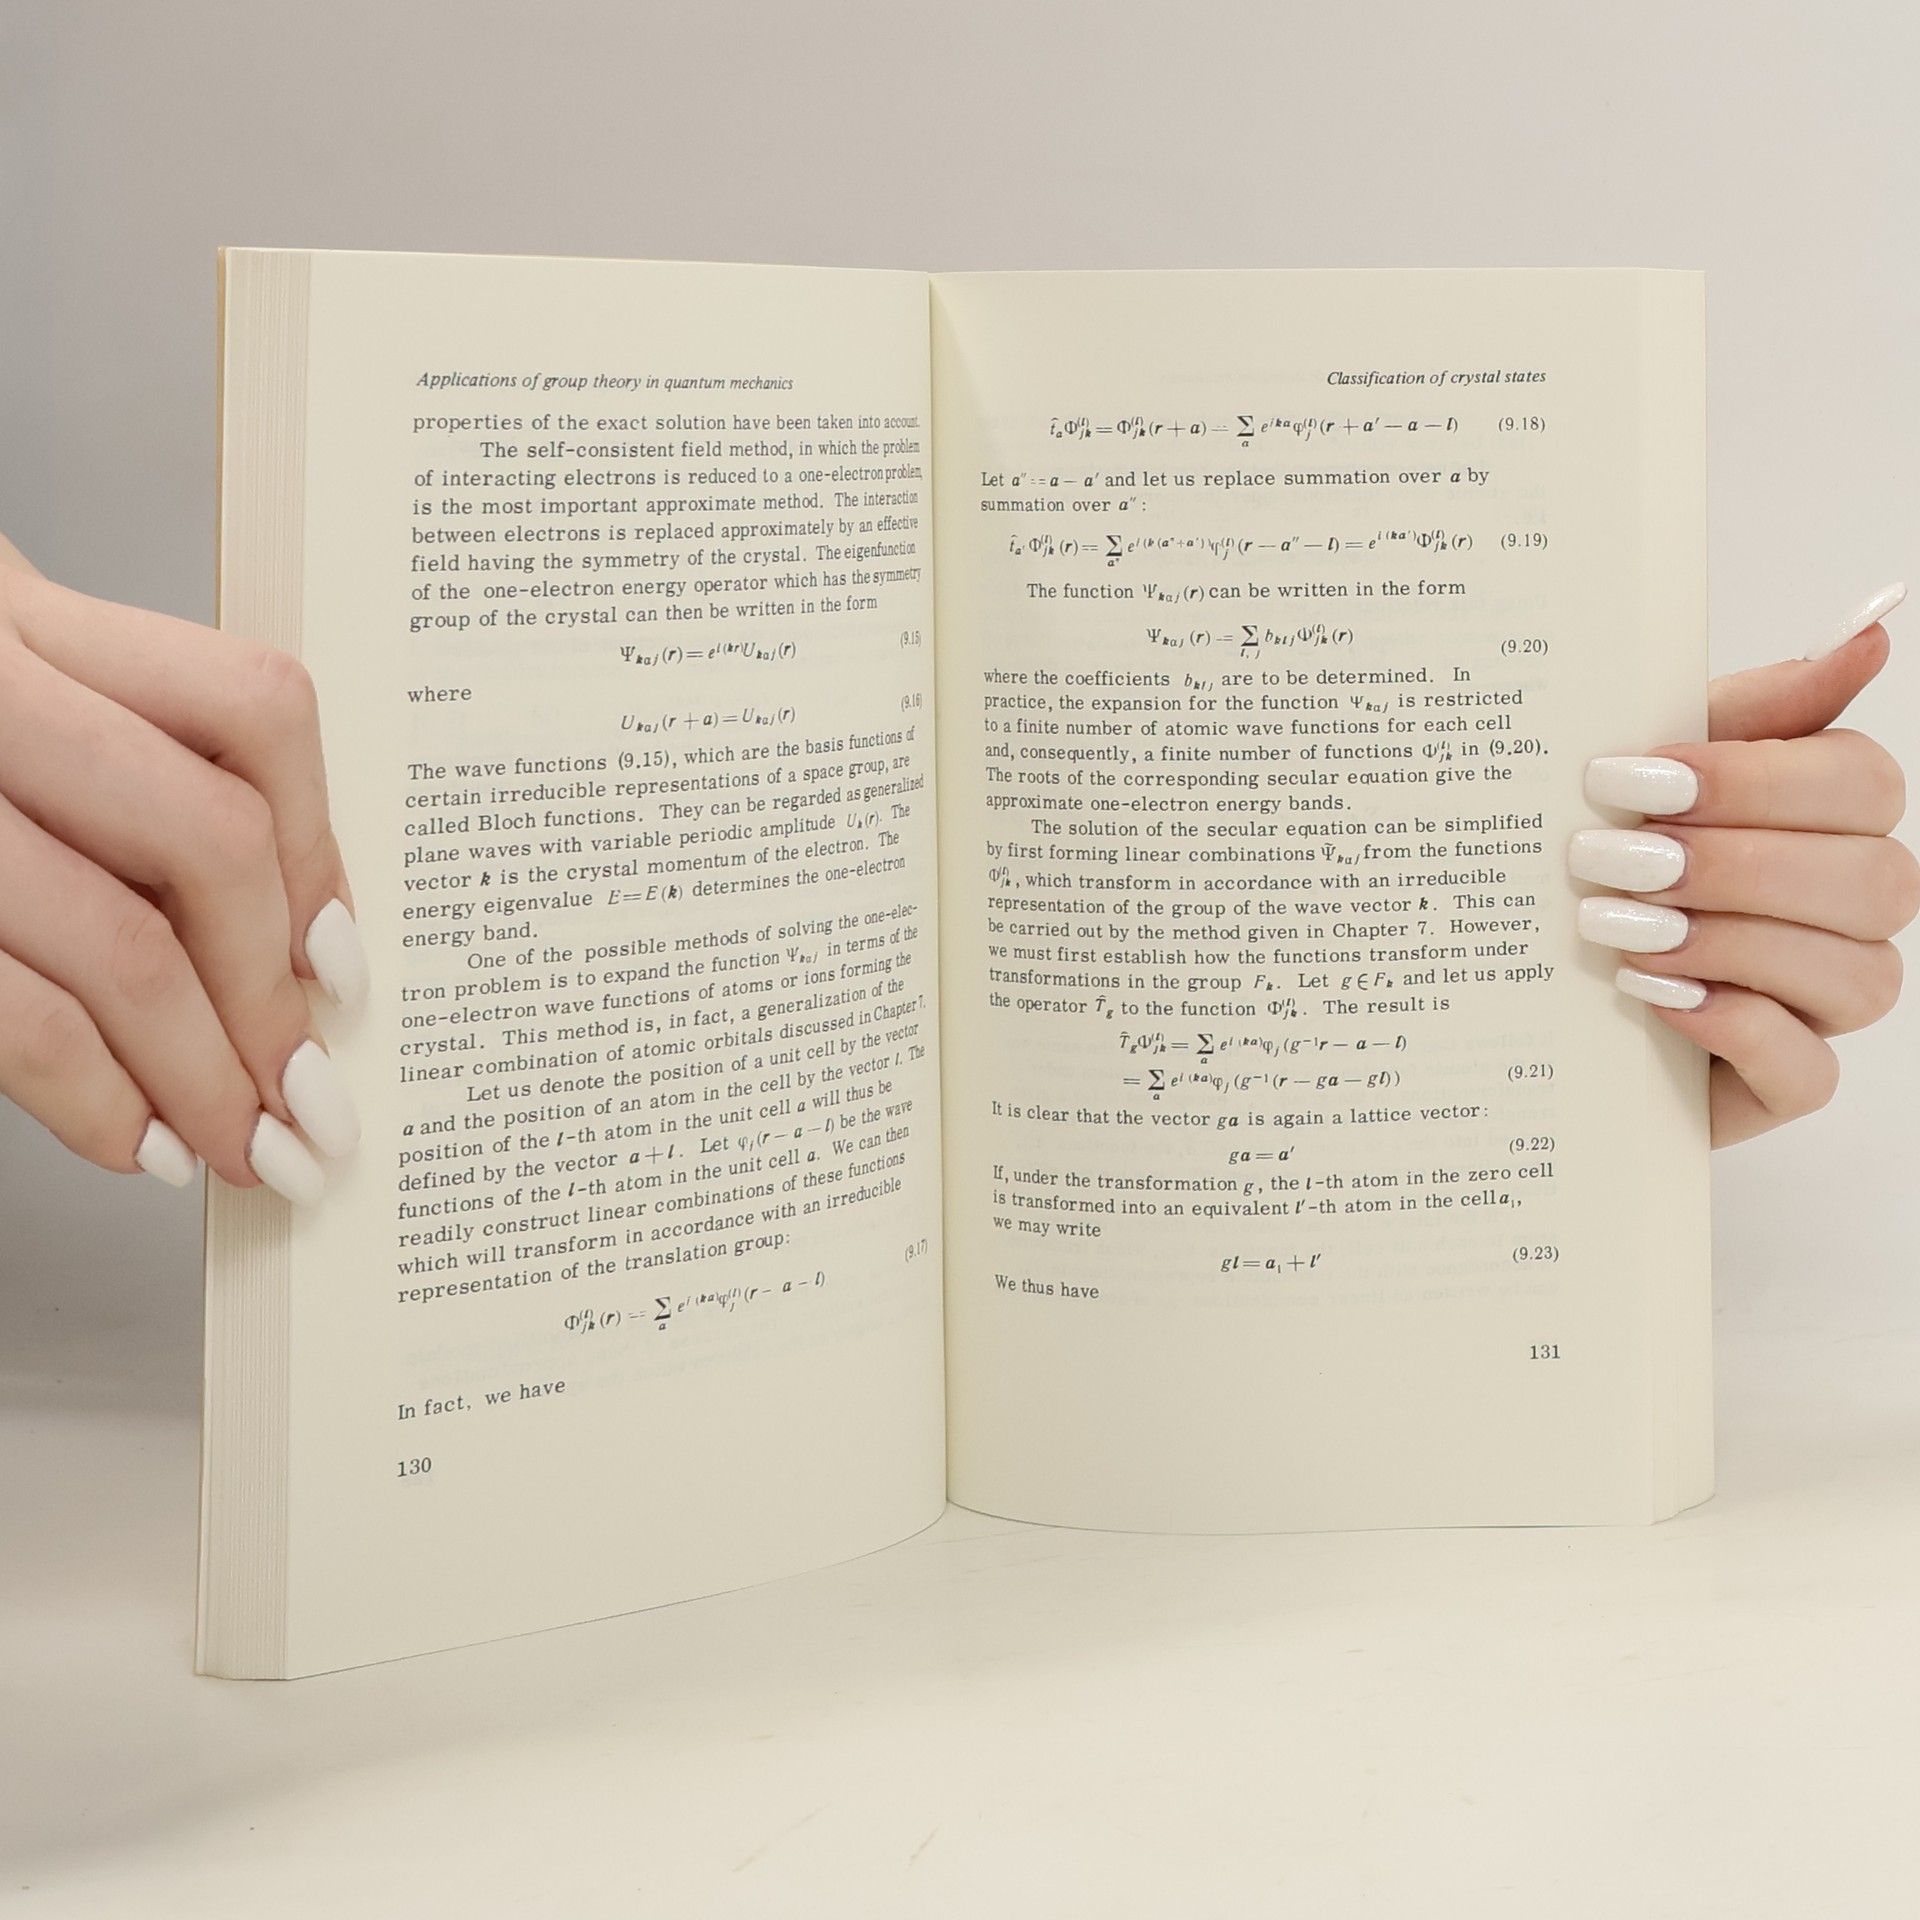 Applications of group theory in quantum mechanics
properties of the exact solution have been taken into account.
The self-consistent field method, in which the problem
of interacting electrons is reduced to a one-electron problem,
is the most important approximate method. The interaction
between electrons is replaced approximately by an effective
field having the symmetry of the crystal. The eigenfunction
of the one-electron energy operator which has the symmetry
group of the crystal can then be written in the form
Ψₖₐⱼ(r) = e^{i(kr)}Uₖₐⱼ(r) (9.15)
where
Uₖₐⱼ(r + a) = Uₖₐⱼ(r) (9.16)
The wave functions (9.15), which are the basis functions of
certain irreducible representations of a space group, are
called Bloch functions. They can be regarded as generalized
plane waves with variable periodic amplitude Uₖ(r). The
vector k is the crystal momentum of the electron. The
energy eigenvalue E = E(k) determines the one-electron
energy band.
One of the possible methods of solving the one-elec-
tron problem is to expand the function Ψₖₐⱼ in terms of the
one-electron wave functions of atoms or ions forming the
crystal. This method is, in fact, a generalization of the
linear combination of atomic orbitals discussed in Chapter 7.
Let us denote the position of a unit cell by the vector
a and the position of an atom in the cell by the vector l. The
position of the l-th atom in the unit cell a will thus be
defined by the vector a + l. Let φⱼ(r − a − l) be the wave
functions of the l-th atom in the unit cell a. We can then
readily construct linear combinations of these functions
which will transform in accordance with an irreducible
representation of the translation group:
Φ_{jk}^{(l)}(r) = ∑_a e^{i(ka)}φ_j^{(l)}(r − a − l) (9.17)
In fact, we have
130
Classification of crystal states
t̂_aΦ_{jk}^{(l)} = Φ_{jk}^{(l)}(r + a) = ∑_a e^{ika}φ_j^{(l)}(r + a′ − a − l) (9.18)
Let a″ = a − a′ and let us replace summation over a by
summation over a″:
t̂_{a′}Φ_{jk}^{(l)}(r) = ∑_{a″} e^{i(k(a″+a′))}φ_j^{(l)}(r − a″ − l) = e^{i(ka′)}Φ_{jk}^{(l)}(r) (9.19)
The function Ψₖₐⱼ(r) can be written in the form
Ψₖₐⱼ(r) = ∑_{l, j} b_{klj}Φ_{jk}^{(l)}(r) (9.20)
where the coefficients b_{klj} are to be determined. In
practice, the expansion for the function Ψₖₐⱼ is restricted
to a finite number of atomic wave functions for each cell
and, consequently, a finite number of functions Φ_{jk}^{(l)} in (9.20).
The roots of the corresponding secular equation give the
approximate one-electron energy bands.
The solution of the secular equation can be simplified
by first forming linear combinations Ψ̃ₖₐⱼ from the functions
Φ_{jk}^{(l)}, which transform in accordance with an irreducible
representation of the group of the wave vector k. This can
be carried out by the method given in Chapter 7. However,
we must first establish how the functions transform under
transformations in the group Fₖ. Let g ∈ Fₖ and let us apply
the operator T̂_g to the function Φ_{jk}^{(l)}. The result is
T̂_gΦ_{jk}^{(l)} = ∑_a e^{i(ka)}φⱼ(g⁻¹r − a − l)
= ∑_a e^{i(ka)}φⱼ(g⁻¹(r − ga − gl)) (9.21)
It is clear that the vector ga is again a lattice vector:
ga = a′ (9.22)
If, under the transformation g, the l-th atom in the zero cell
is transformed into an equivalent l′-th atom in the cell a₁,
we may write
gl = a₁ + l′ (9.23)
We thus have
131